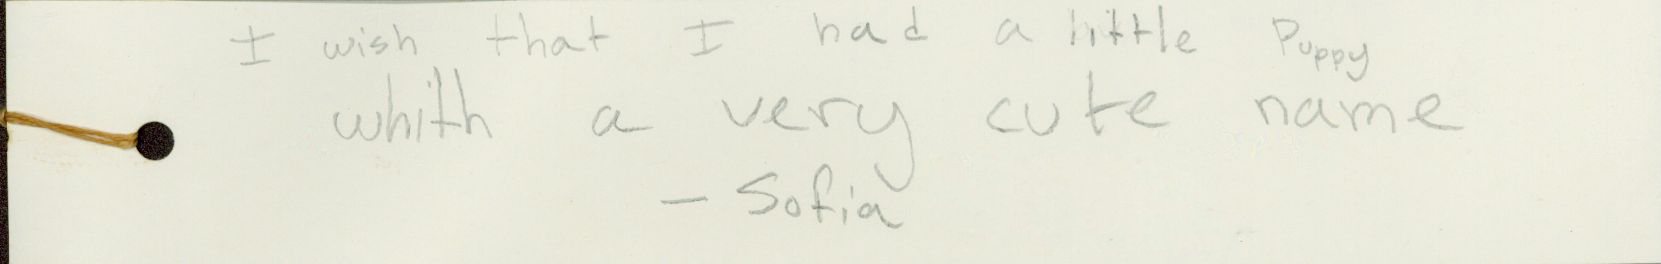 I wish that I had a little Puppy
whith a very cute name
- Sofia